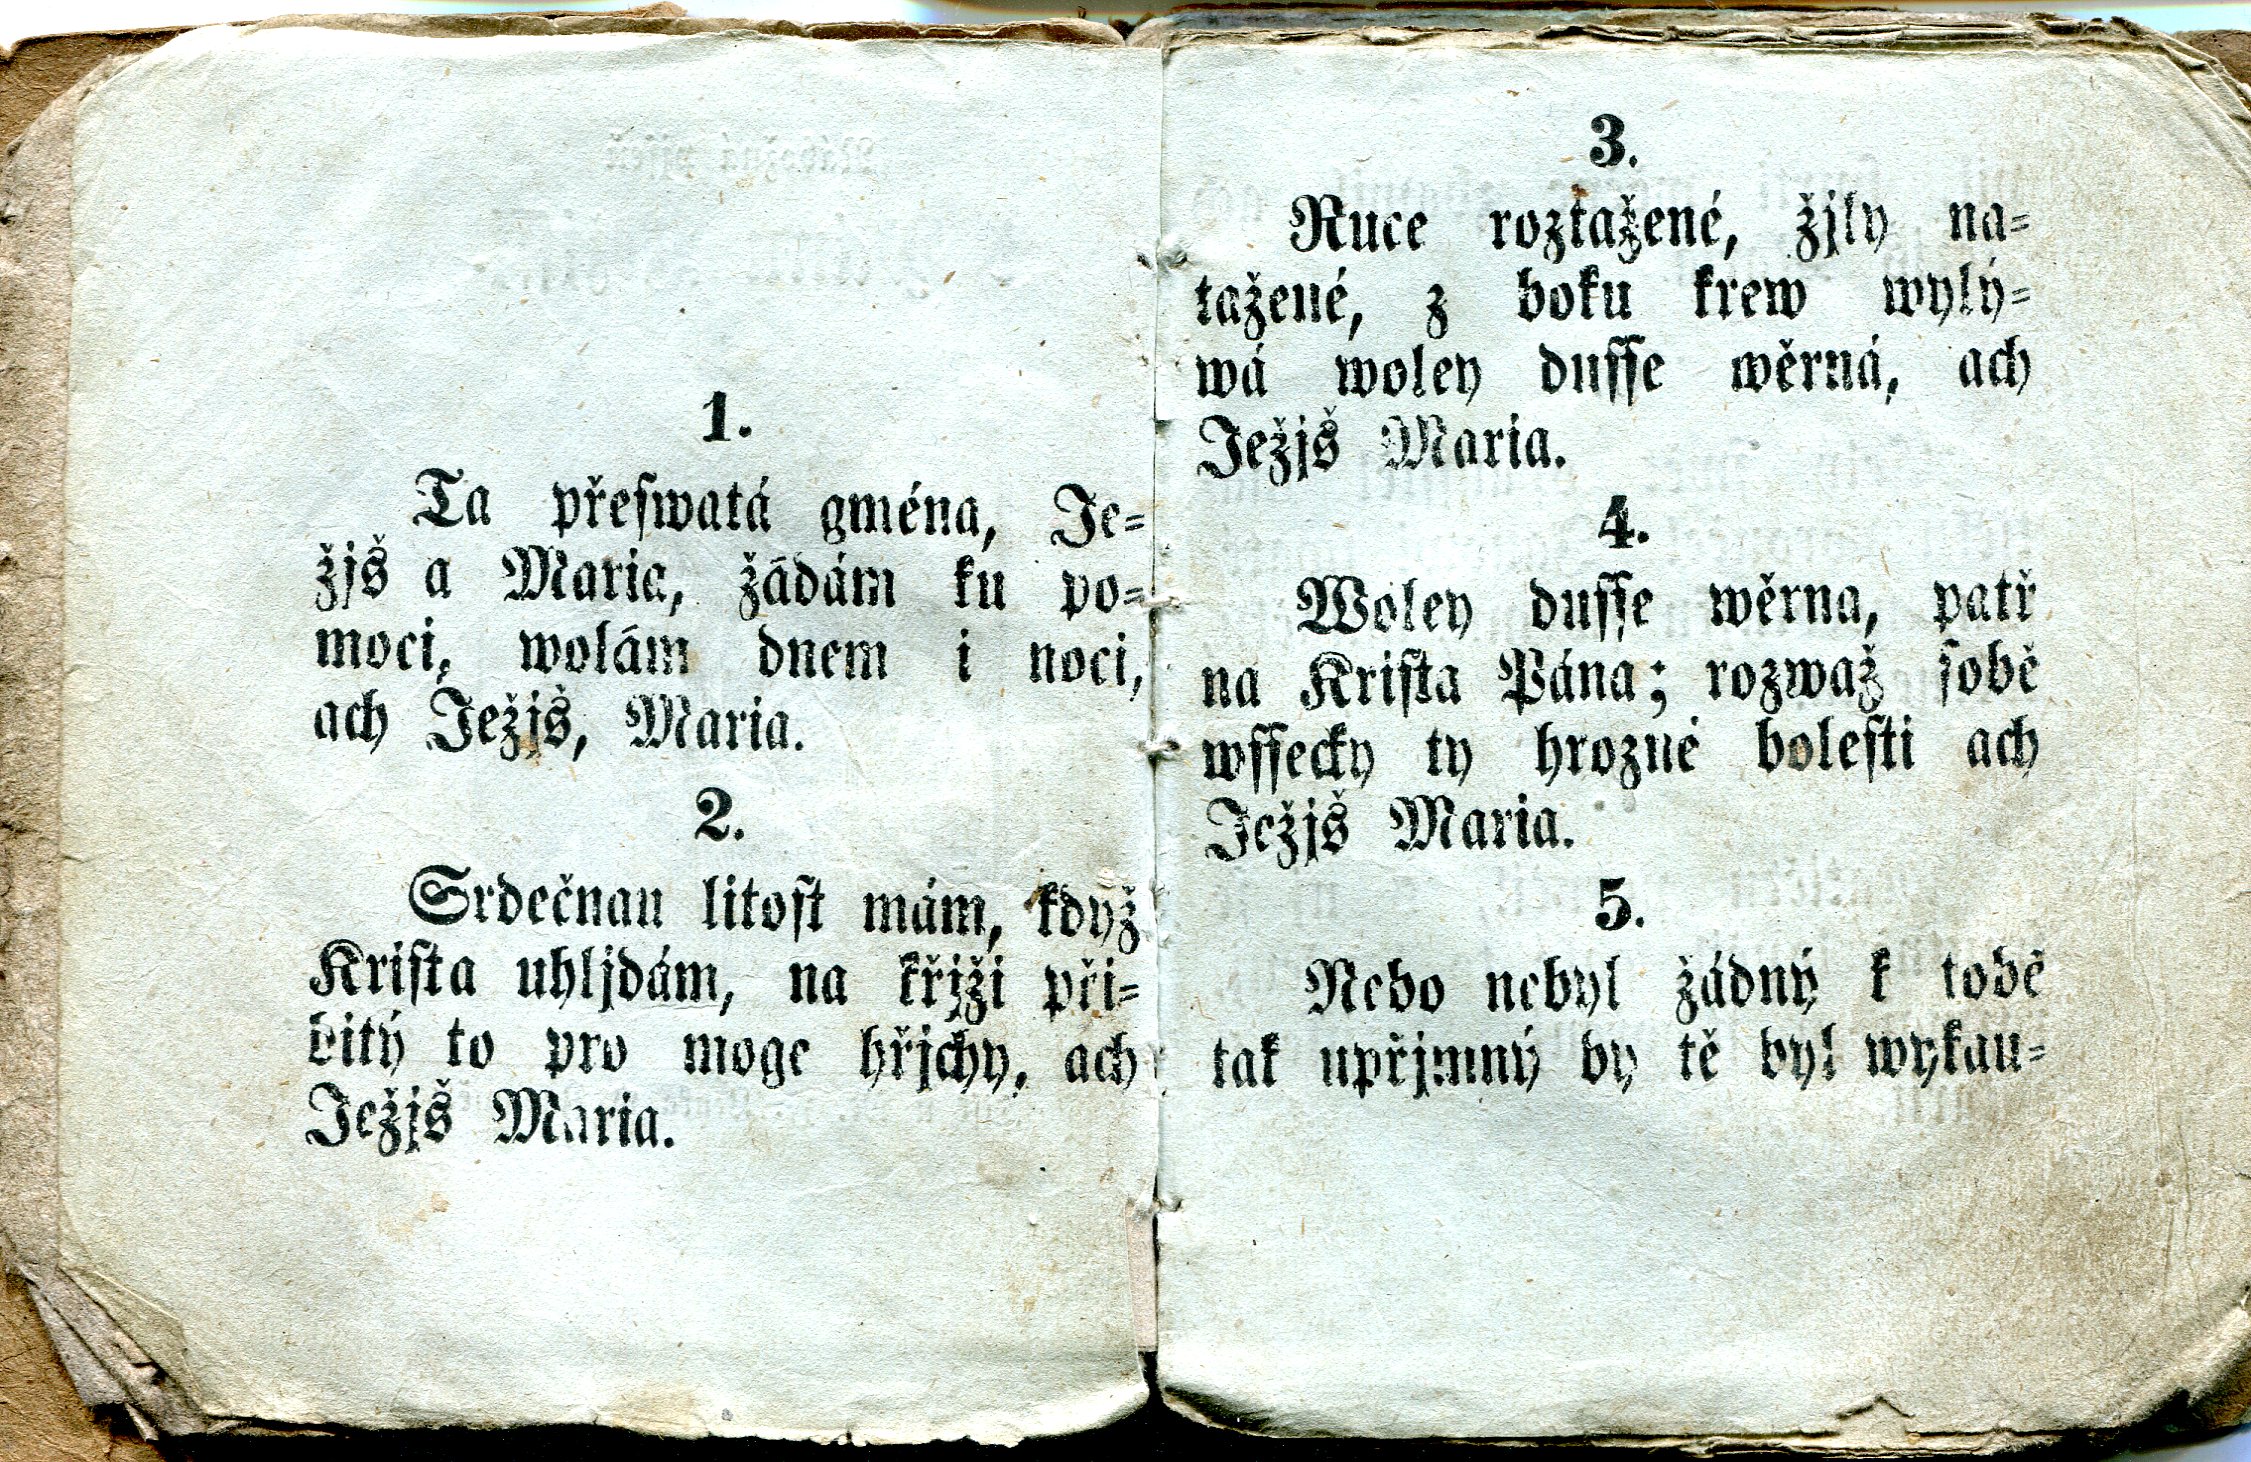 1.
Ta přeswatá gména, Je=
žjš a Maria, žádám ku po=
moci, wolám dnem i noci,
ach Ježjš, Maria.
2.
Srdečnau litost mám, když
Krista uhljdám, na křjži při=
bitý to pro moge hřjchy, ach
Ježjš Maria.
3.
Ruce roztažené, žjly na=
tažené, z boku krew wylý=
wá woley dusse wěrná, ach
Ježjš Maria.
4.
Woley dusse wěrna, patř
na Krista Pána; rozwaž sobě
wssecky ty hrozné bolesti ach
Ježjš Maria.
5.
Nebo nebyl žádný k tobě
tak upřjmný by tě byl wykau=